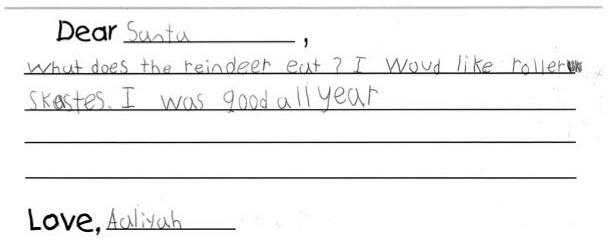 Dear Santa,
What does the reindeer eat? I Woud like roller
skastes. I was good all year
Love, Aaliyah